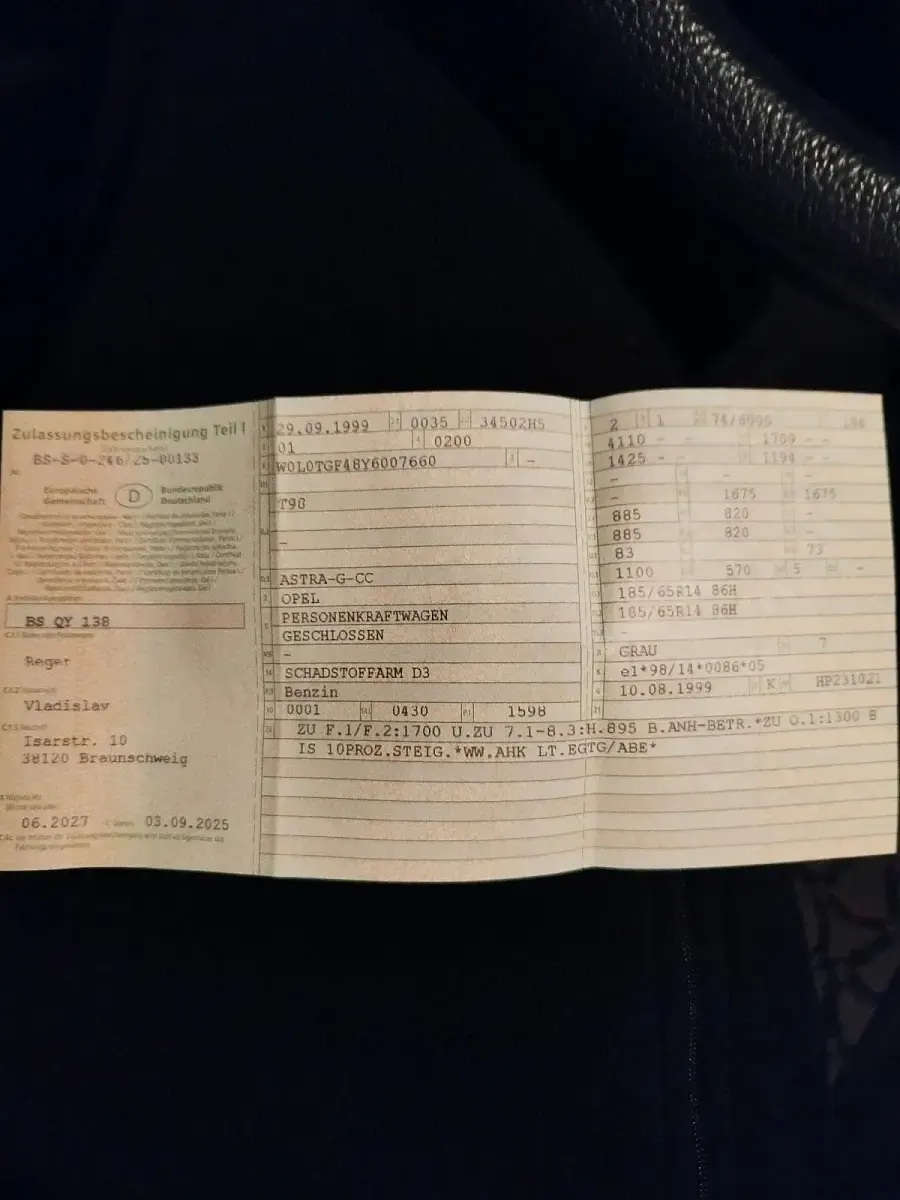 Zulassungsbescheinigung Teil I
BS-S-0-246/25-00133
Europäische Gemeinschaft
D
Bundesrepublik Deutschland
BS QY 138
Reger
Vladislav
Isarstr. 10
38120 Braunschweig
06.2027
03.09.2025
29.09.1999 0035 34502H5
01 0200
W0L0TGF48Y6007660 -
T98
-
ASTRA-G-CC
OPEL
PERSONENKRAFTWAGEN
GESCHLOSSEN
-
SCHADSTOFFARM D3
Benzin
0001 0430 1598
2 1 74/6000 186
4110 - - 1709 - -
1425 - - 1194 - -
- - -
- 1675 1675
885 820 -
885 820 -
83 73
1100 570 5 -
185/65R14 86H
185/65R14 86H
-
GRAU 7
e1*98/14*0086*05
10.08.1999 K HP231021
ZU F.1/F.2:1700 U.ZU 7.1-8.3:H.895 B.ANH-BETR.*ZU O.1:1300 B
IS 10PROZ.STEIG.*WW.AHK LT.EGTG/ABE*